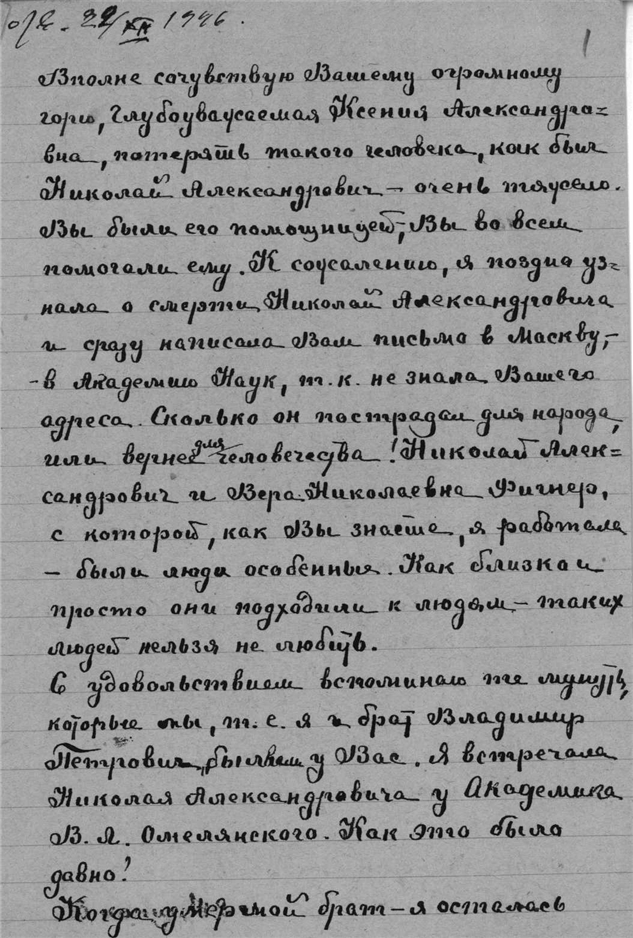 о/е. 22/XII 1946.
1
Вполне сочувствую Вашему огромному
горю, Глубоуважаемая Ксения Александро=
вна, потерять такого человека, как был
Николай Александрович – очень тяжело.
Вы были его помощницей, Вы во всем
помогали ему. К сожалению, я поздно уз=
нала о смерти Николай Александровича
и сразу написала Вам письмо в Маскву, –
– в Академию Наук, т.к. не знала Вашего
адреса. Сколько он пострадал для народа,
или вернее для человечества! Николай Алек=
сандрович и Вера Николаевна Фигнер,
с которой, как Вы знаете, я работала
– были люди особенные. Как близко и
просто они подходили к людям – таких
людей нельзя не любить.
С удовольствием вспоминаю те минуты,
которые мы, т.е. я и брат Владимир
Петрович, были у Вас. Я встречала
Николая Александровича у Академика
В.Л. Омелянского. Как это было
давно!
Когда умер мой брат – я осталась